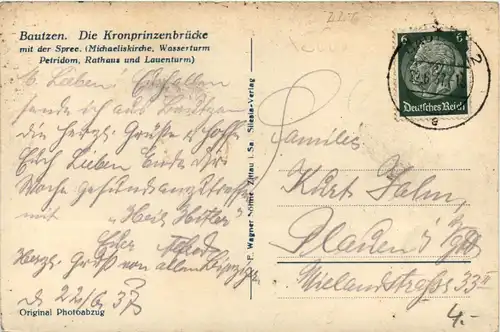 Bautzen. Die Kronprinzenbrücke
mit der Spree. (Michaeliskirche, Wasserturm
Petridom, Rathaus und Lauenturm)
M. Lieben!
sende ich aus Bautzen
die herzl. Grüße u. hoffe
Euch Lieben Ende der
Woche gesund anzutreffen
mit „Heil Hitler"
Euer
Herzl. Gruß von allen
d. 22/6 37
Original Photoabzug
F. Wagner Söhne, Zittau i. Sa. Silesia-Verlag
6
6
Deutsches Reich
2
Familie
Kurt Hahn,
Plauen i/Vgtl
Wielandstraße 33 II
4.-